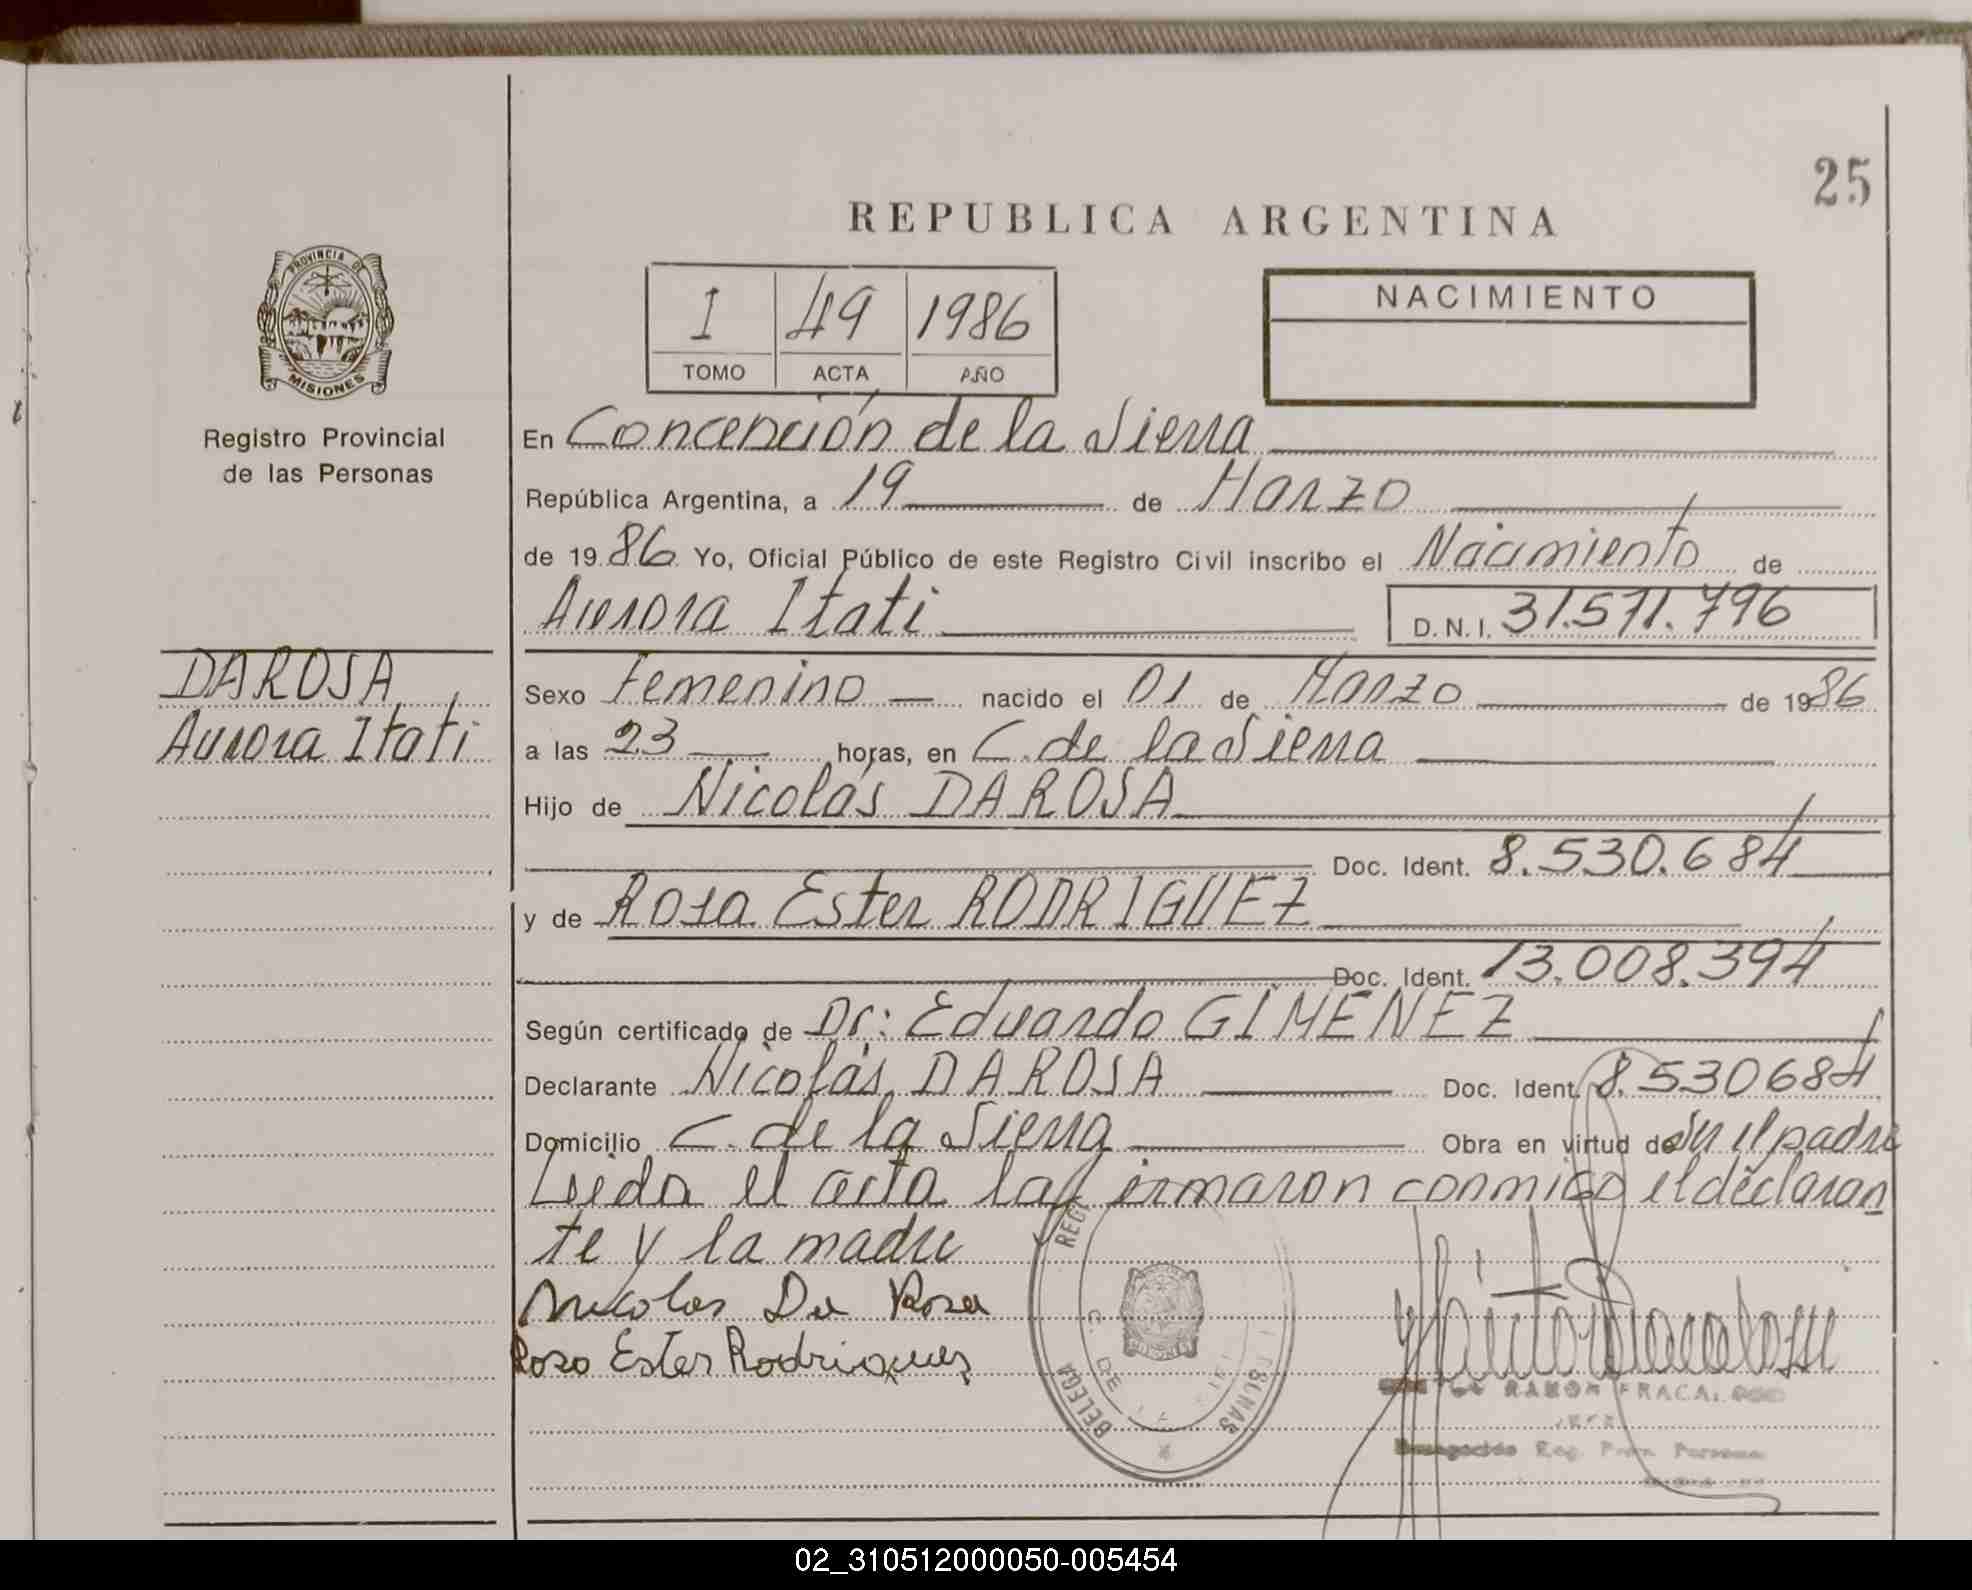 25
REPUBLICA ARGENTINA
PROVINCIA DE
MISIONES
Registro Provincial
de las Personas
I 49 1986
TOMO ACTA AÑO
NACIMIENTO
En Concepción de la Sierra
República Argentina, a 19 de Marzo
de 1986 Yo, Oficial Público de este Registro Civil inscribo el Nacimiento de
Aurora Itati D.N.I. 31.571.796
DAROSA
Aurora Itati
Sexo Femenino nacido el 01 de Marzo de 1986
a las 23 horas, en C. de la Sierra
Hijo de Nicolás DAROSA
Doc. Ident. 8.530.684
y de Rosa Ester RODRIGUEZ
Doc. Ident. 13.008.394
Según certificado de Dr: Eduardo GIMENEZ
Declarante Nicolás DAROSA Doc. Ident. 8.530684
Domicilio C. de la Sierra Obra en virtud de Sr el padre
Leida el acta la firmaron conmigo el declaran
te y la madre
Nicolas Da Rosa
Rosa Ester Rodriguez
RAMON FRACA
Reg. Prov. Personas
02_310512000050-005454